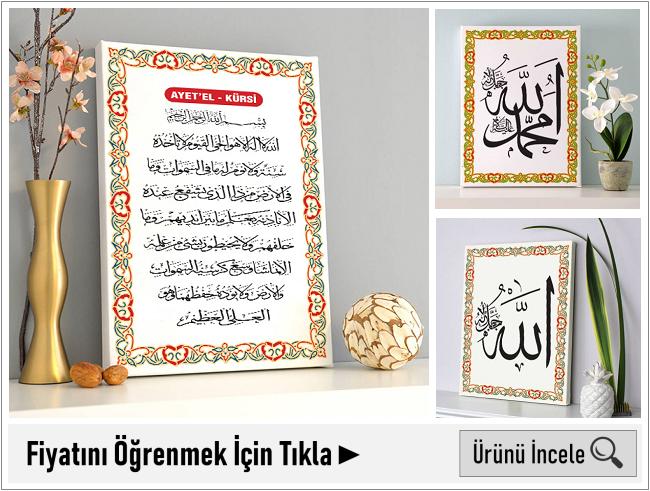 AYET'EL - KÜRSİ
بسم الله الرحمن الرحيم
الله لا اله الا هو الحي القيوم لا تأخذه
سنة ولا نوم له ما في السموات وما
في الارض من ذا الذي يشفع عنده
الا باذنه يعلم ما بين ايديهم وما
خلفهم ولا يحيطون بشئ من علمه
الا بما شاء وسع كرسيه السموات
والارض ولا يؤده حفظهما وهو
العلي العظيم
الله جل جلاله
محمد
الله جل جلاله
Fiyatını Öğrenmek İçin Tıkla ►
Ürünü İncele